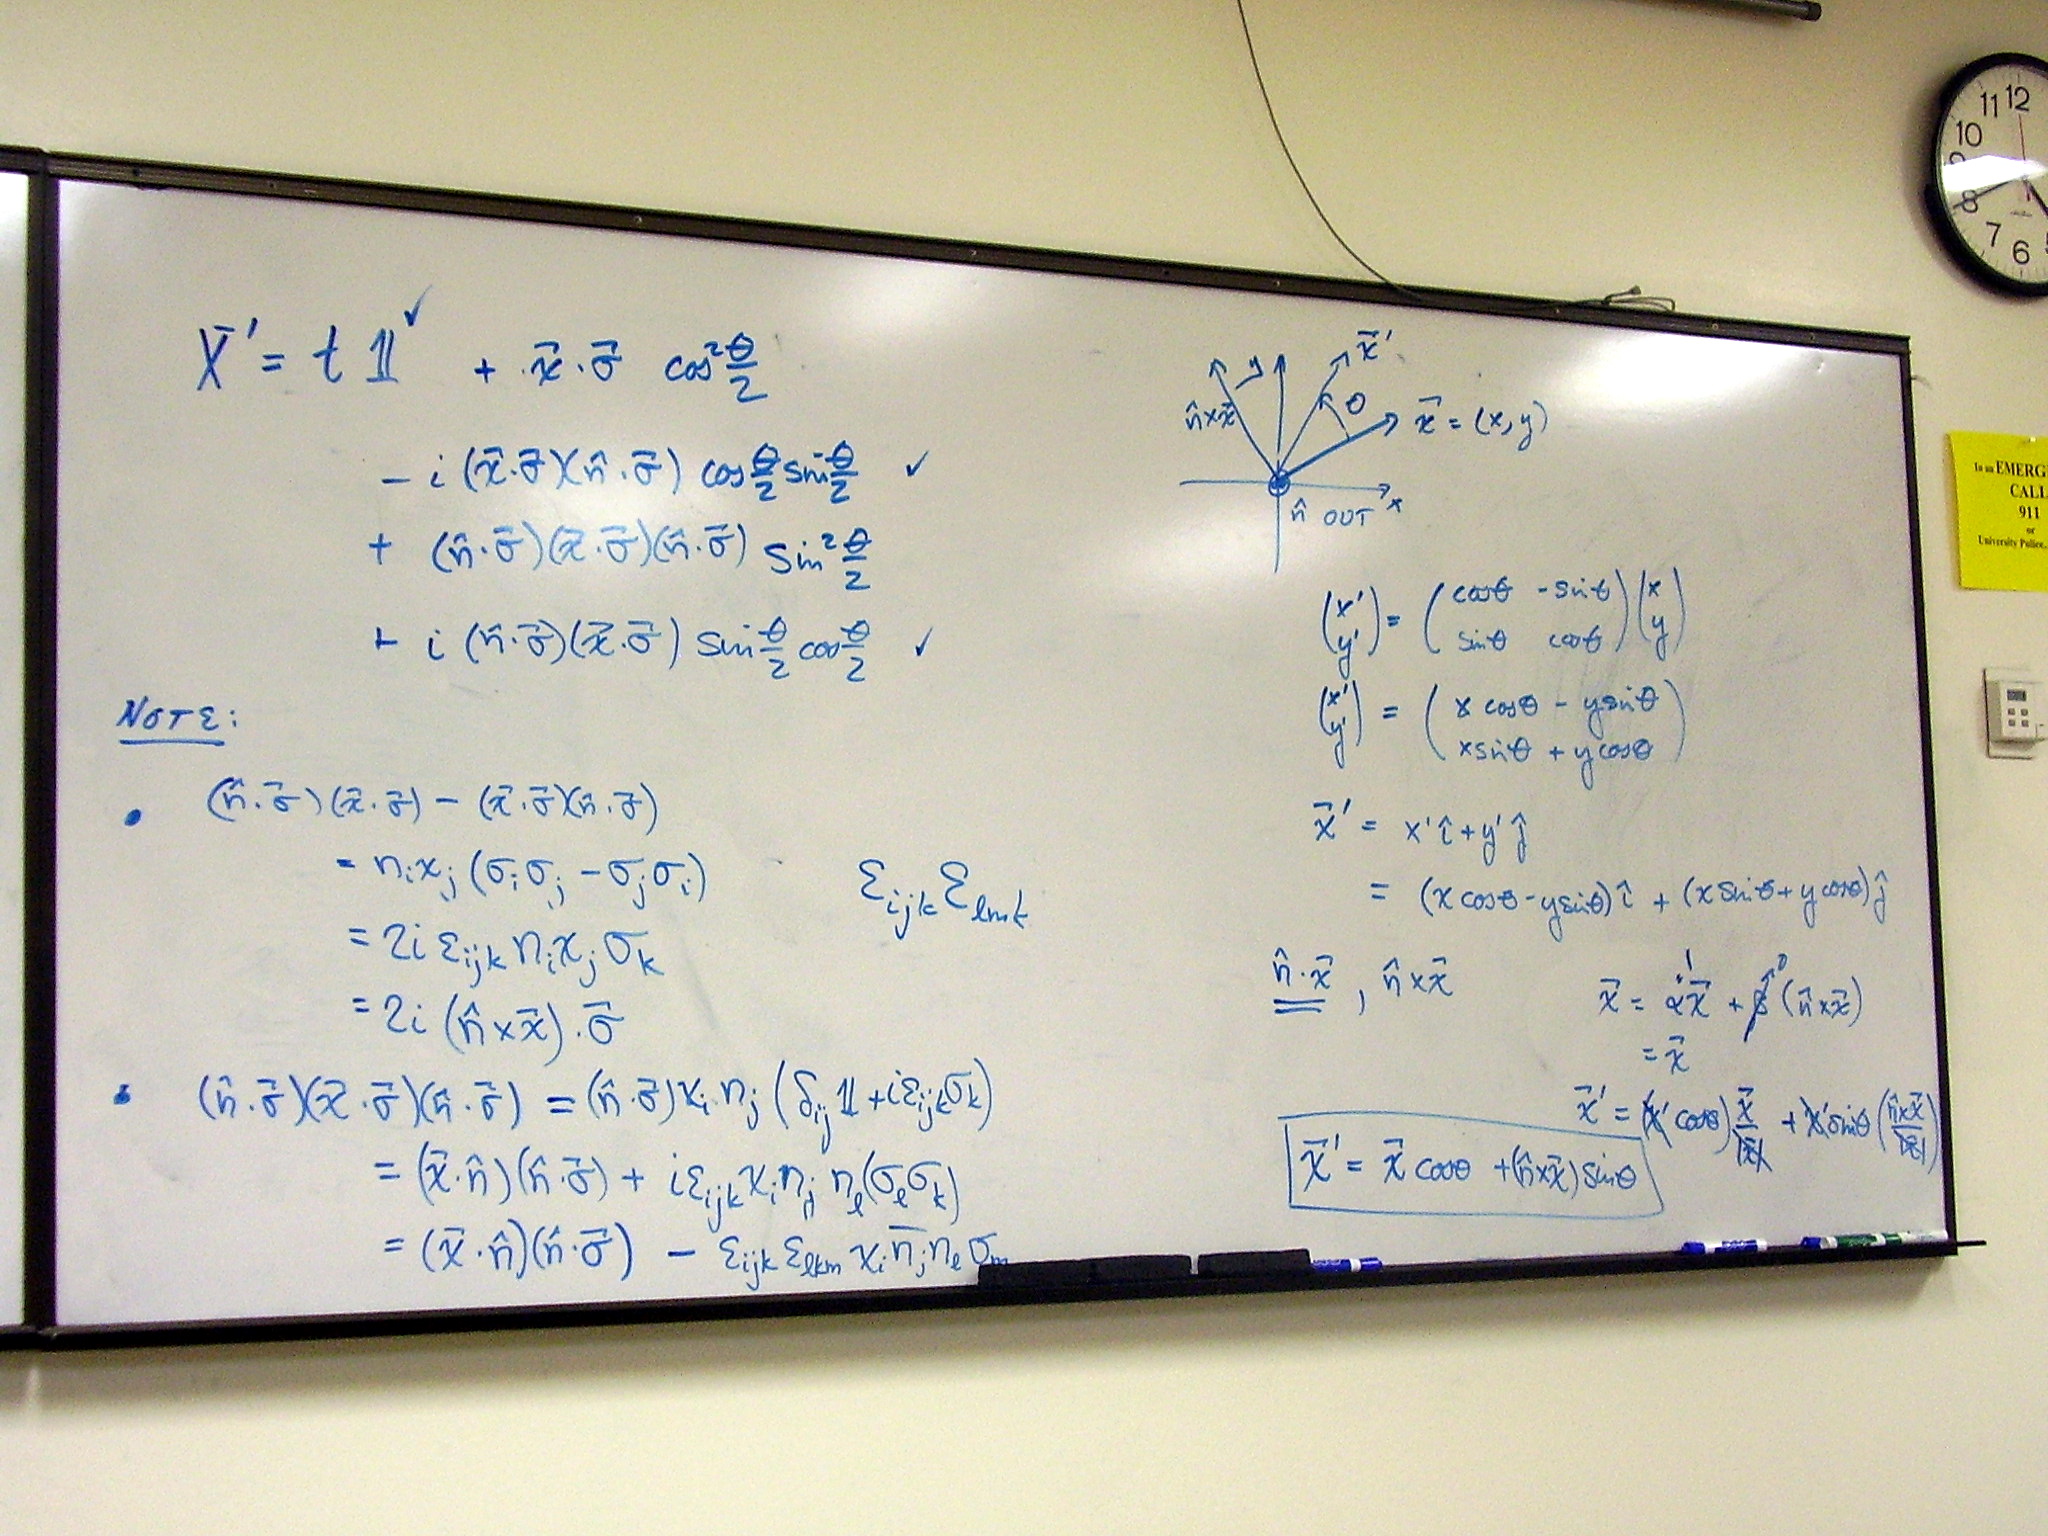 X' = t 𝟙 ✓ + x⃗·σ⃗ cos² θ/2
− i (x⃗·σ⃗)(n̂·σ⃗) cos θ/2 sin θ/2 ✓
+ (n̂·σ⃗)(x⃗·σ⃗)(n̂·σ⃗) sin² θ/2
+ i (n̂·σ⃗)(x⃗·σ⃗) sin θ/2 cos θ/2 ✓
NOTE:
• (n̂·σ⃗)(x⃗·σ⃗) − (x⃗·σ⃗)(n̂·σ⃗)
= nᵢxⱼ (σᵢσⱼ − σⱼσᵢ)
= 2i εᵢⱼₖ nᵢxⱼσₖ
= 2i (n̂×x⃗)·σ⃗
εᵢⱼₖ εₗₘₖ
• (n̂·σ⃗)(x⃗·σ⃗)(n̂·σ⃗) = (n̂·σ⃗)xᵢnⱼ (δᵢⱼ𝟙 + iεᵢⱼₖσₖ)
= (x⃗·n̂)(n̂·σ⃗) + iεᵢⱼₖxᵢnⱼ nₗ(σₗσₖ)
= (x⃗·n̂)(n̂·σ⃗) − εᵢⱼₖεₗₖₘ xᵢnⱼnₗσₘ
n̂×x⃗
y
x⃗'
θ
x⃗ = (x, y)
n̂ OUT
x
(x' y') = (cosθ −sinθ sinθ cosθ)(x y)
(x' y') = (x cosθ − y sinθ x sinθ + y cosθ)
x⃗' = x' î + y' ĵ
= (x cosθ − y sinθ) î + (x sinθ + y cosθ) ĵ
n̂·x⃗ , n̂×x⃗
x⃗ = α¹x⃗ + β⁰(n̂×x⃗)
= x⃗
x⃗' = (x' cosθ) x⃗/|x⃗| + x' sinθ (n̂×x⃗/|x⃗|)
x⃗' = x⃗ cosθ + (n̂×x⃗) sinθ
11 12
10
9
8
7
6
5
In an EMERG
CALL
911
or
University Police,